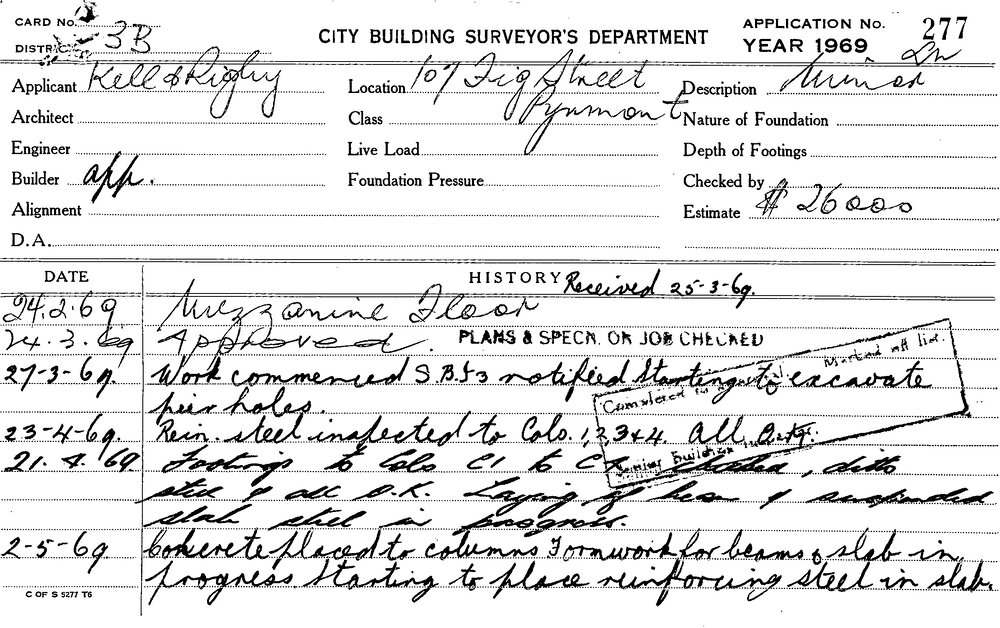 CARD No.
DISTRICT 3B
CITY BUILDING SURVEYOR'S DEPARTMENT
APPLICATION No. 277
YEAR 1969
Applicant Kell & Rigby
Location 107 Fig Street
Pyrmont
Description Minor
Architect
Class
Nature of Foundation
Engineer
Live Load
Depth of Footings
Builder app.
Foundation Pressure
Checked by
Alignment
Estimate $ 26000
D.A.
DATE
HISTORY Received 25-3-69.
24.2.69 Mezzanine Floor
24.3.69 Approved. PLANS & SPECN. ON JOB CHECKED
27-3-69. Work commenced S.B.I3 notified Starting to excavate
peir holes.
Completed in Marked off list.
23-4-69. Rein. steel inspected to Cols. 1,2,3&4. All
Senior Building
21.4.69. Footings to Cols C1 to checked, ditto
steel & all O.K. Laying of beam & suspended
slab steel in progress.
2-5-69 Concrete placed to columns Formwork for beams & slab in
progress Starting to place reinforcing steel in slab.
C OF S 5277 T6